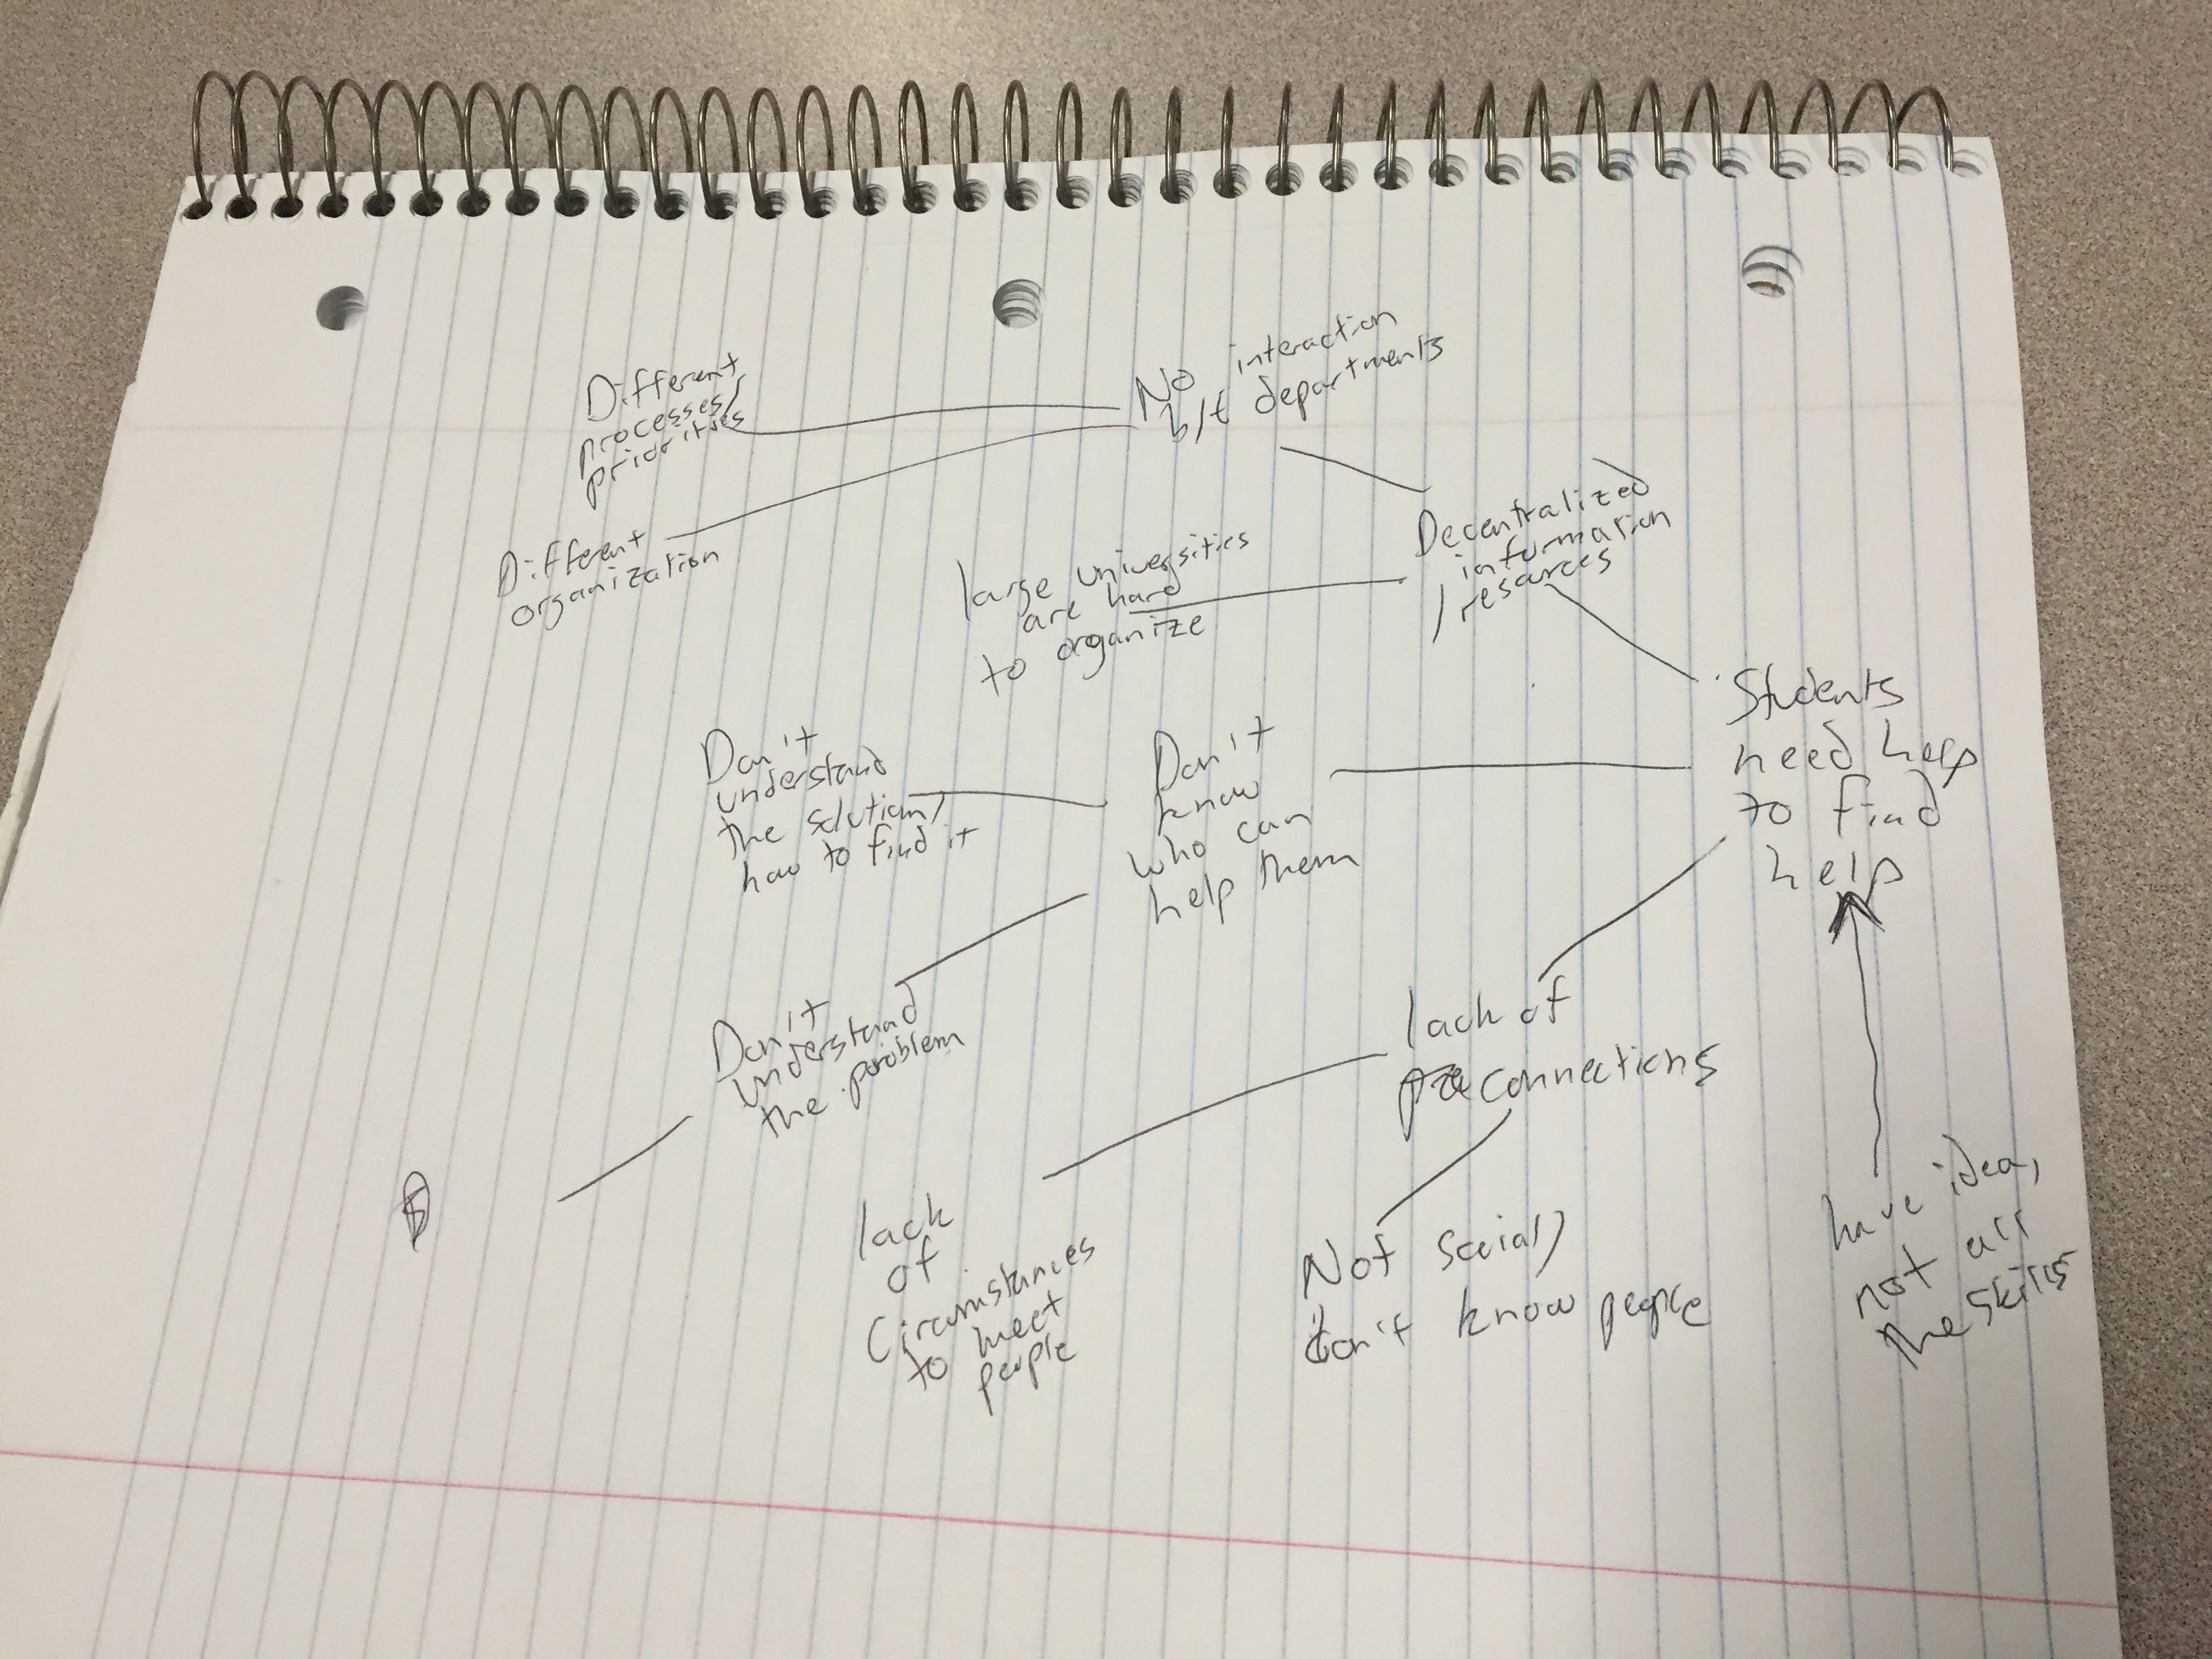 Different
processes/
priorities
No interaction
b/t departments
Different
organization
large universities
are hard
to organize
Decentralized
information
/resources
Students
need help
to find
help
Don't
understand
the solution/
how to find it
Don't
know
who can
help them
Don't
understand
the problem
lack of
connections
lack
of
circumstances
to meet
people
Not social/
don't know people
have idea,
not all
the skills